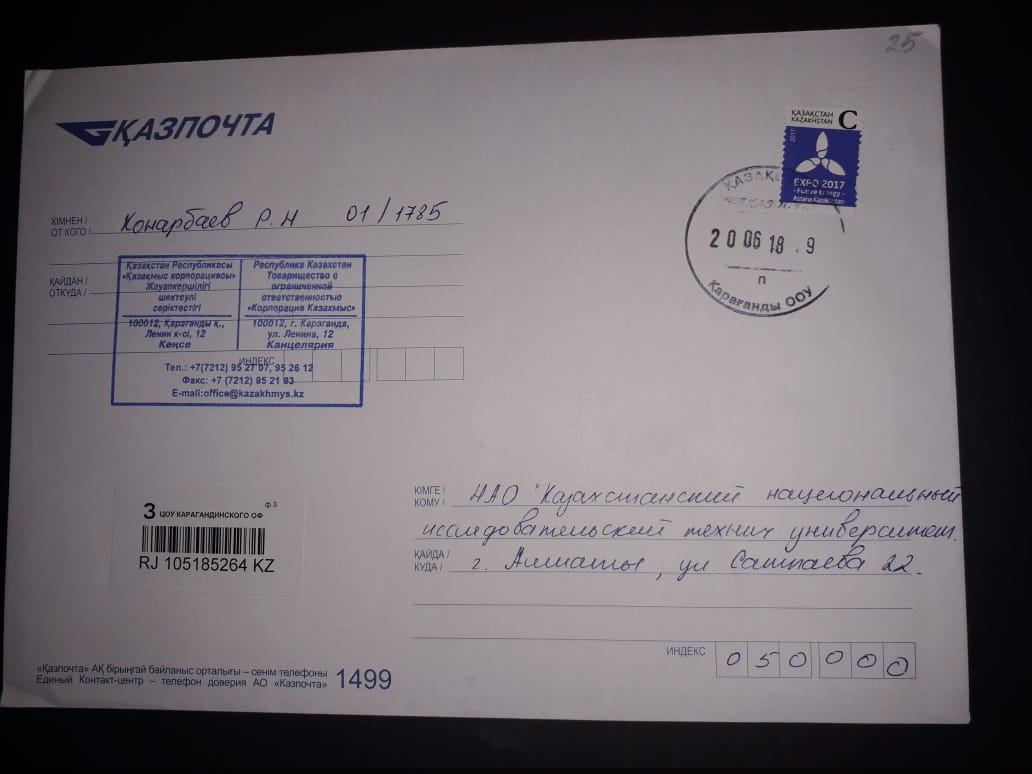 25
ҚАЗПОЧТА
ҚАЗАҚСТАН
KAZAKHSTAN
C
2017
EXPO 2017
Future Energy
Astana Kazakhstan
20 06 18 9
п
Қарағанды ООУ
КІМНЕН /
ОТ КОГО /
Конарбаев Р. Н 01/1785
ҚАЙДАН /
ОТКУДА /
Қазақстан Республикасы
«Қазақмыс корпорациясы»
Жауапкершілігі
шектеулі
серіктестігі
100012, Қарағанды қ.,
Ленин к-сі, 12
Кеңсе
Республика Казахстан
Товарищество с
ограниченной
ответственностью
«Корпорация Казахмыс»
100012, г. Караганда,
ул. Ленина, 12
Канцелярия
ИНДЕКС
Тел.: +7(7212) 95 27 07, 95 26 12
Факс: +7 (7212) 95 21 93
E-mail:office@kazakhmys.kz
З ЦОУ КАРАГАНДИНСКОГО ОФ
ф.3
RJ 105185264 KZ
КІМГЕ /
КОМУ /
НАО "Казахстанский национальный
исследовательский технич. университет.
ҚАЙДА /
КУДА /
г. Алматы, ул Сатпаева 22.
ИНДЕКС
050000
«Қазпочта» АҚ бірыңғай байланыс орталығы – сенім телефоны
Единый Контакт-центр – телефон доверия АО «Казпочта»
1499